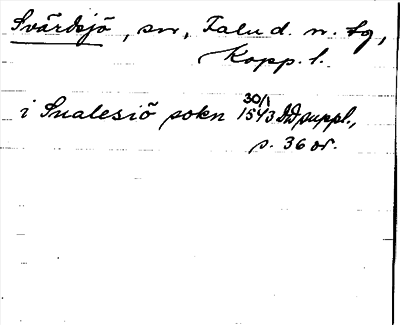 Svärdsjö, sn, Falu d. n. tg,
Kopp. l.
i Sualesiö sokn 30/1 1543 DD suppl.,
s. 36 or.